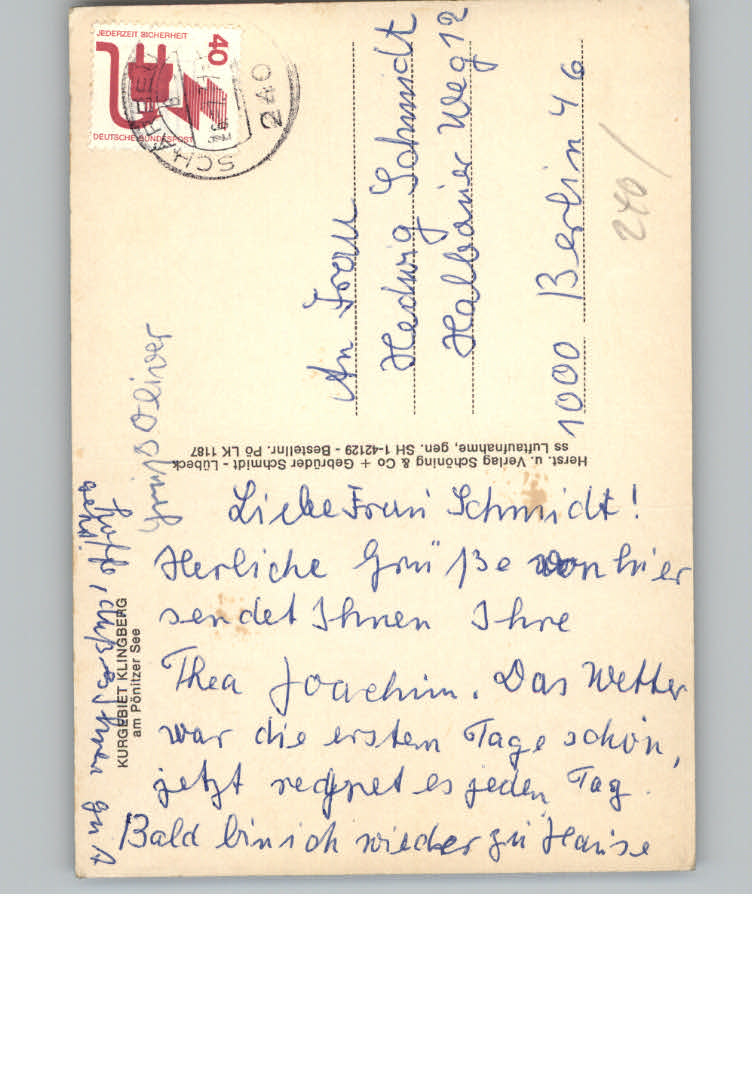 Liebe Frau Schmidt!
Herliche Grüße von hier
sendet Ihnen Ihre
Thea Joachim. Das Wetter
war die ersten Tage schön,
jetzt regnet es jeden Tag.
Bald bin ich wieder zu Hause
hoffe, daß es Ihnen gut
geht.
Gruß Oliver
KURGEBIET KLINGBERG
am Pönitzer See
Herst. u. Verlag Schöning & Co + Gebrüder Schmidt - Lübeck
ss Luftaufnahme, gen. SH 1-42129 - Bestellnr. Pö LK 1187
JEDERZEIT SICHERHEIT
40
DEUTSCHE BUNDESPOST
240
An Frau
Hedwig Schmidt
Halbauer Weg 12
1000 Berlin 46
240/